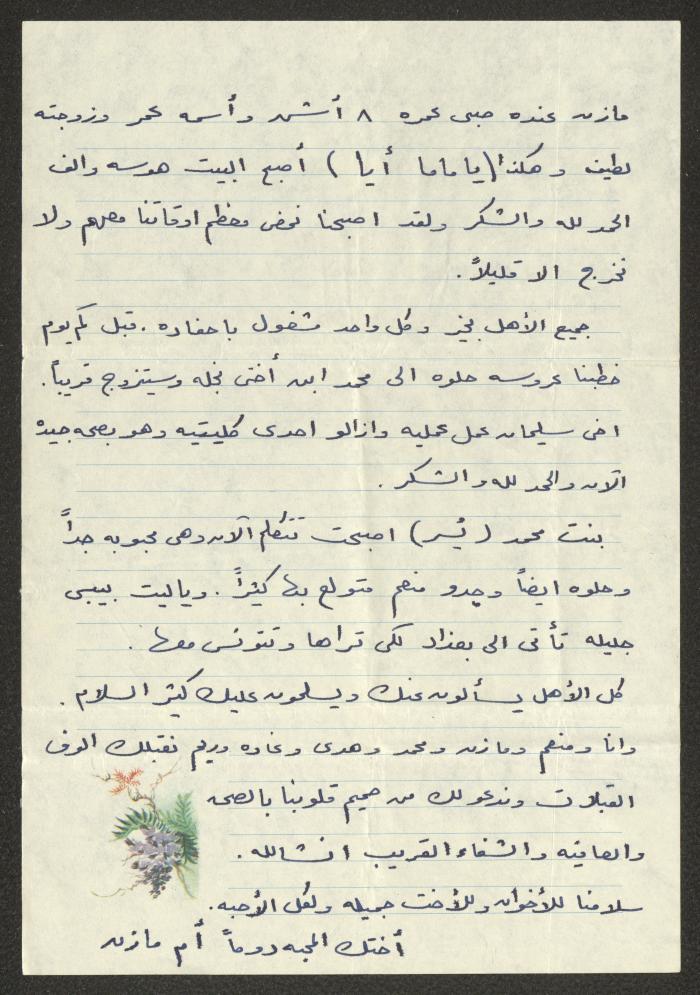 مازن عنده صبي عمره ٨ أشهر وأسمه عمر وزوجته
لطيفه وهكذا (يا ماما أيا) أصبح البيت هوسه والف
الحمد لله والشكر ولقد اصبحنا نمضي معظم اوقاتنا معهم ولا
نخرج الا قليلاً.
جميع الأهل بخير وكل واحد مشغول باحفاده. قبل كم يوم
خطبنا عروسه حلوه الى محمد ابن أختي نجله وسيتزوج قريباً.
اخي سليمان عمل عمليه وازالو احدى كليتيه وهو بصحه جيده
الآن والحمد لله والشكر.
بنت محمد (يُسر) اصبحت تتكلم الآن وهي محبوبه جداً
وحلوه ايضاً وجدو منعم متولع بها كثيراً. وياليت بيبي
جليله تأتي الى بغداد لكي تراها وتتونس معها.
كل الأهل يسألون عنك ويسلمون عليك كثير السلام.
وانا ومنعم ومازن ومحمد وهدى وغاده وريم نقبلك الوف
القبلات وندعو لك من صميم قلوبنا بالصحه
والعافيه والشفاء القريب انشالله.
سلامنا للأخوان وللأخت جميله ولكل الأحبه.
أختك المحبه دوماً أم مازن